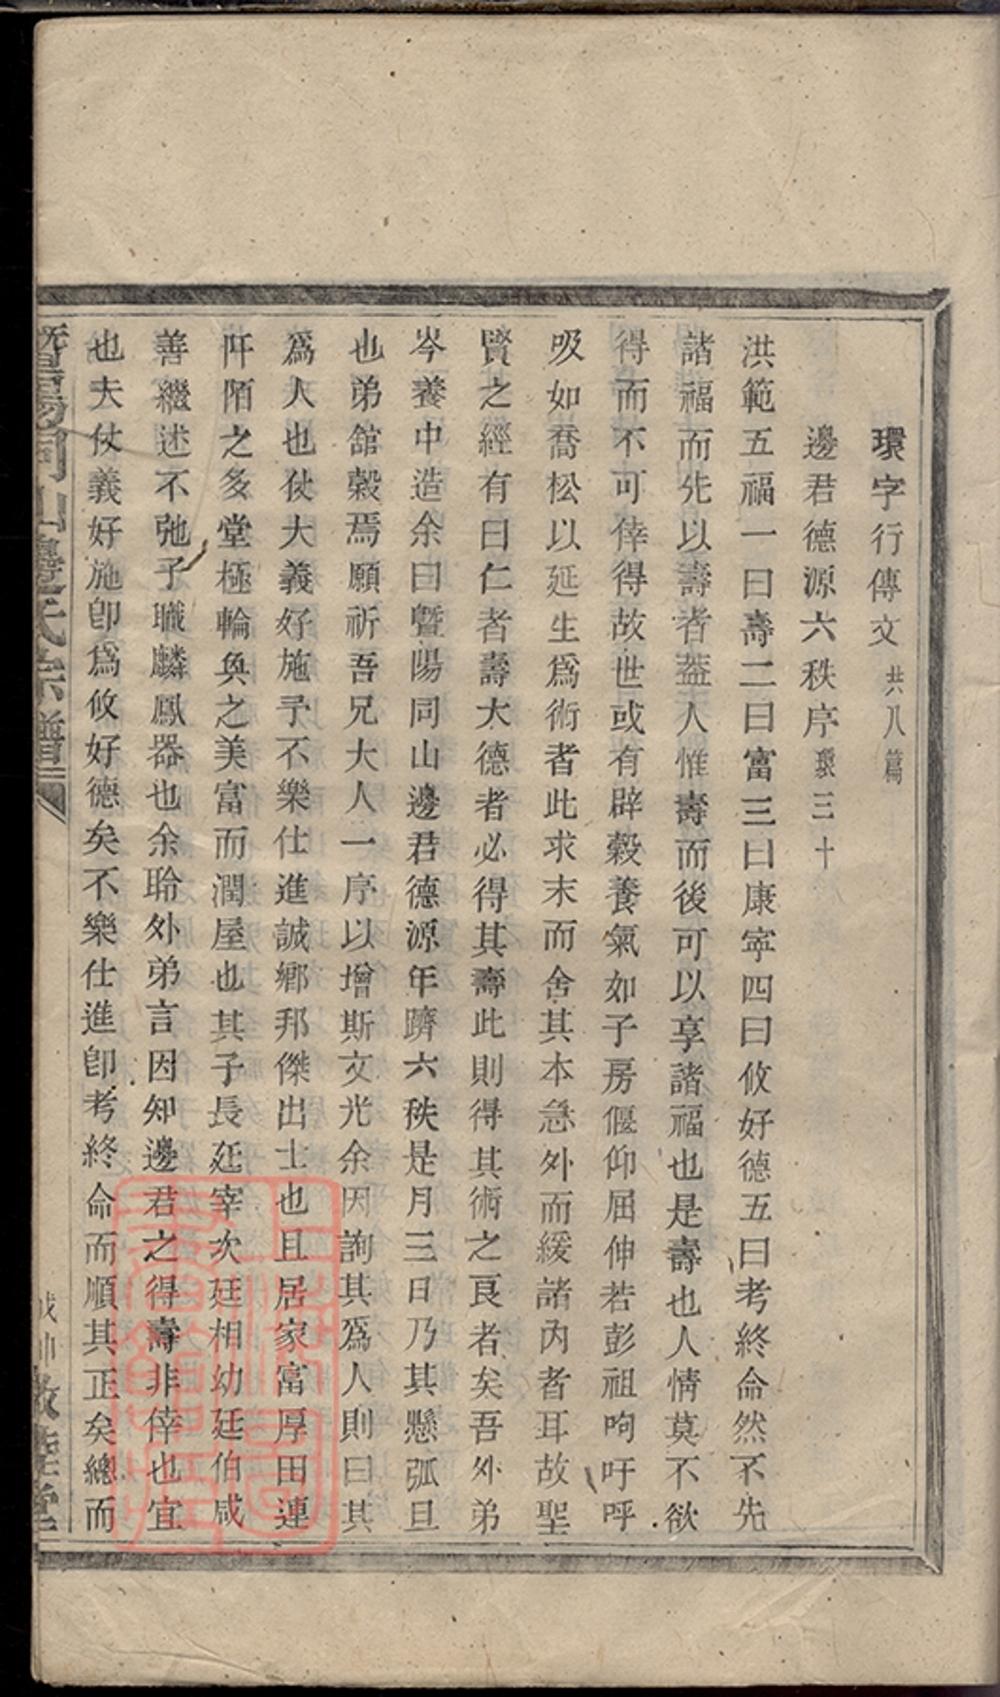 環字行傳文共八篇
邊君德源六秩序環三十
洪範五福一曰壽二曰富三曰康寜四曰攸好德五曰考終命然不先
諸福而先以壽者葢人惟壽而後可以享諸福也是壽也人情莫不欲
得而不可倖得故世或有辟榖養氣如子房偃仰屈伸若彭祖呴吁呼
吸如喬松以延生爲術者此求末而舍其本急外而緩諸內者耳故聖
賢之經有曰仁者壽大德者必得其壽此則得其術之良者矣吾外弟
岑養中造余曰曁陽同山邊君德源年躋六秩是月三日乃其懸弧旦
也弟舘榖焉願祈吾兄大人一序以增斯文光余因詢其爲人則曰其
爲人也仗大義好施予不樂仕進誠鄕邦傑出士也且居家富厚田連
阡陌之多堂極輪奐之美富而潤屋也其子長廷宰次廷相幼廷伯咸
善繼述不弛子職麟鳳器也余聆外弟言因知邊君之得壽非倖也宜
也夫仗義好施卽爲攸好德矣不樂仕進卽考終命而順其正矣總而
曁陽同山邊氏宗譜
敦睦堂
上海圖書館藏